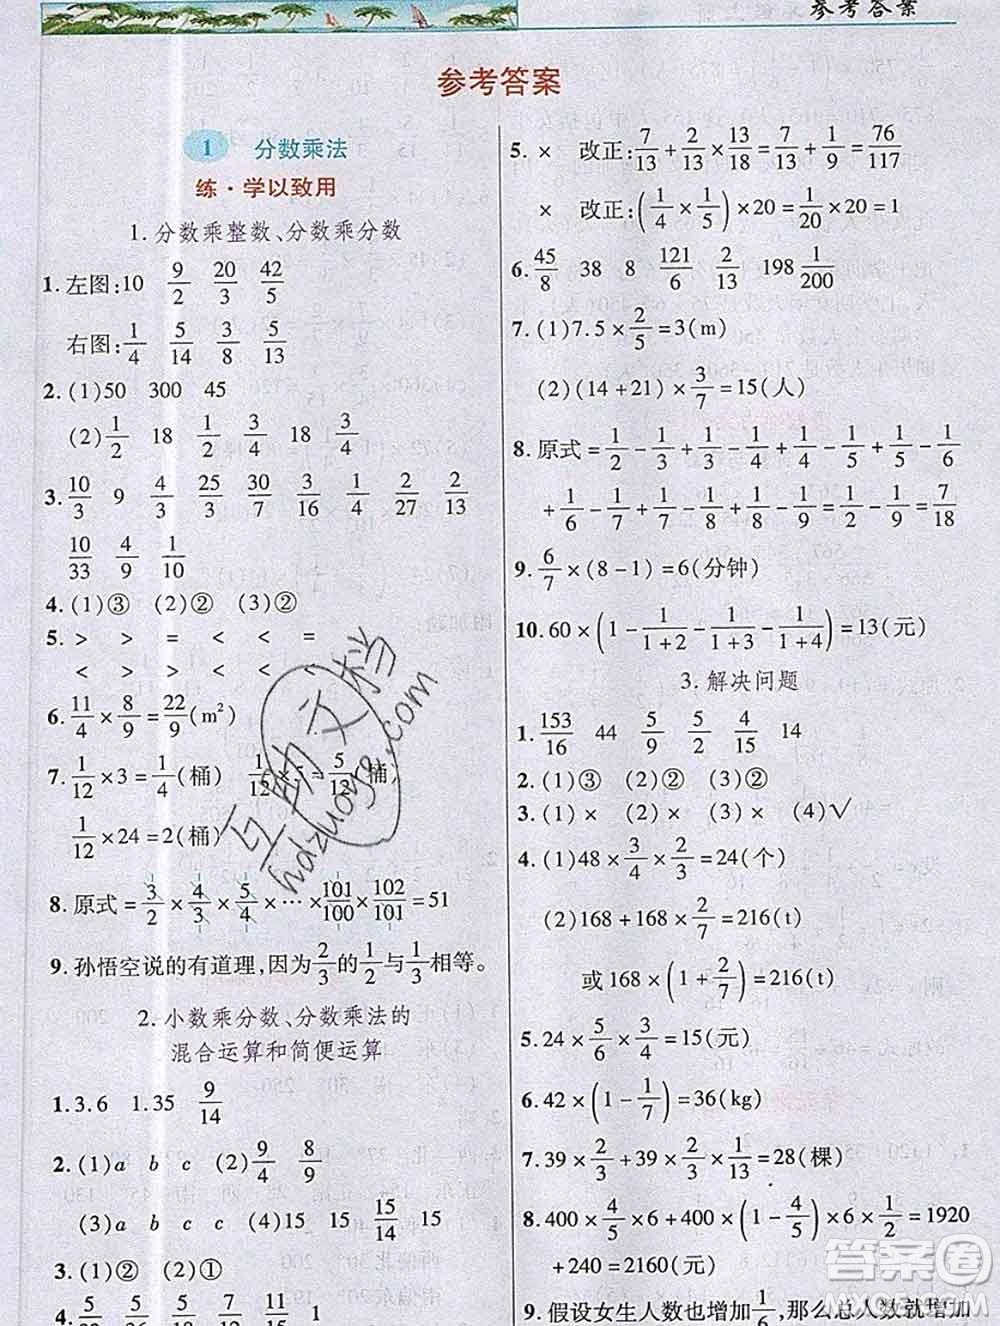 参考答案
参考答案
1 分数乘法
练·学以致用
1.分数乘整数、分数乘分数
1.左图:10 9/2 20/3 42/5
右图:1/4 5/14 3/8 5/13
2.(1)50 300 45
(2)1/2 18 3/4 18 3/4
3.10/3 9 4/3 25/3 30/7 3/16 1/4 4/27 2/13
10/33 4/9 1/10
4.(1)③ (2)② (3)②
5.> > = < < =
< > > > <
6.11/4×8/9=22/9(m²)
7.1/12×3=1/4(桶) 1/12 = 5/12 桶
1/12×24=2(桶)
8.原式=3/2×4/3×5/4×…×101/100×102/101=51
9.孙悟空说的有道理,因为2/3的1/2与1/3相等。
2.小数乘分数、分数乘法的
混合运算和简便运算
1.3.6 1.35 9/14
2.(1)a b c (2)9/4 8/9
(3)a c b c (4)15 15 15/14 15/14
3.(1)② (2)①
4.
5.× 改正:7/13+2/13×13/18=7/13+1/9=76/117
× 改正:(1/4×1/5)×20=1/20×20=1
6.45/8 38 8 121/6 2/13 198 1/200
7.(1)7.5×2/5=3(m)
(2)(14+21)×3/7=15(人)
8.原式=1/2-1/3+1/3-1/4+1/4-1/5+1/5-1/6
+1/6-1/7+1/7-1/8+1/8-1/9=1/2-1/9=7/18
9.6/7×(8-1)=6(分钟)
10.60×(1-1/1+2-1/1+3-1/1+4)=13(元)
3.解决问题
1.153/16 44 5/9 5/2 45 14
2.(1)③ (2)② (3)②
3.(1)× (2)× (3)× (4)√
4.(1)48×3/4×2/3=24(个)
(2)168+168×2/7=216(t)
或168×(1+2/7)=216(t)
5.24×5/6×3/4=15(元)
6.42×(1-1/7)=36(kg)
7.39×2/3 =28(棵)
8.400×4/5×6+400×(1-4/5)×6×1/2=1920
+240=2160(元)
9.假设女生人数也增加1/6,那么总人数就增加
互助文档
hdzuoye.com
答案圈